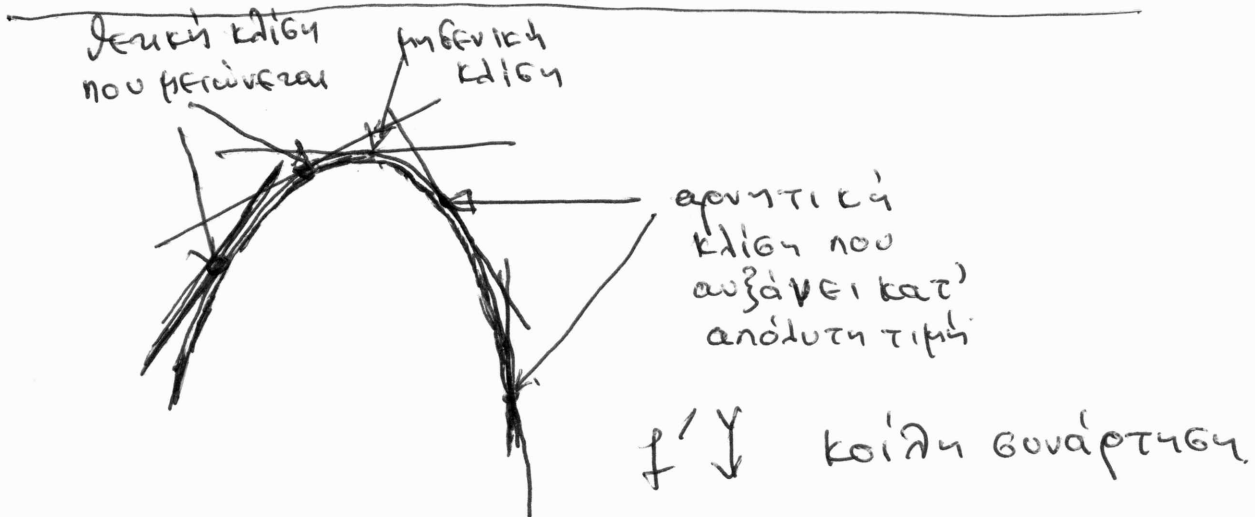 θετική κλίση
που μειώνεται
μηδενική
κλίση
αρνητική
κλίση που
αυξάνει κατ'
απόλυτη τιμή
f' ↓ κοίλη συνάρτηση.